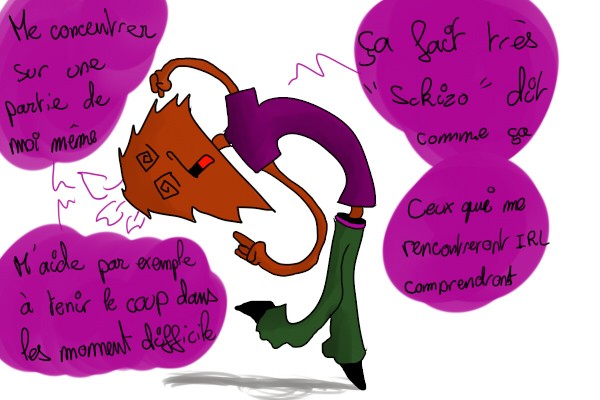 Me concentrer
sur une
partie de
moi même
M'aide par exemple
à tenir le coup dans
les moment difficile
ça fait très
"Schizo" dit
comme ça
Ceux qui me
rencontreront IRL
comprendront